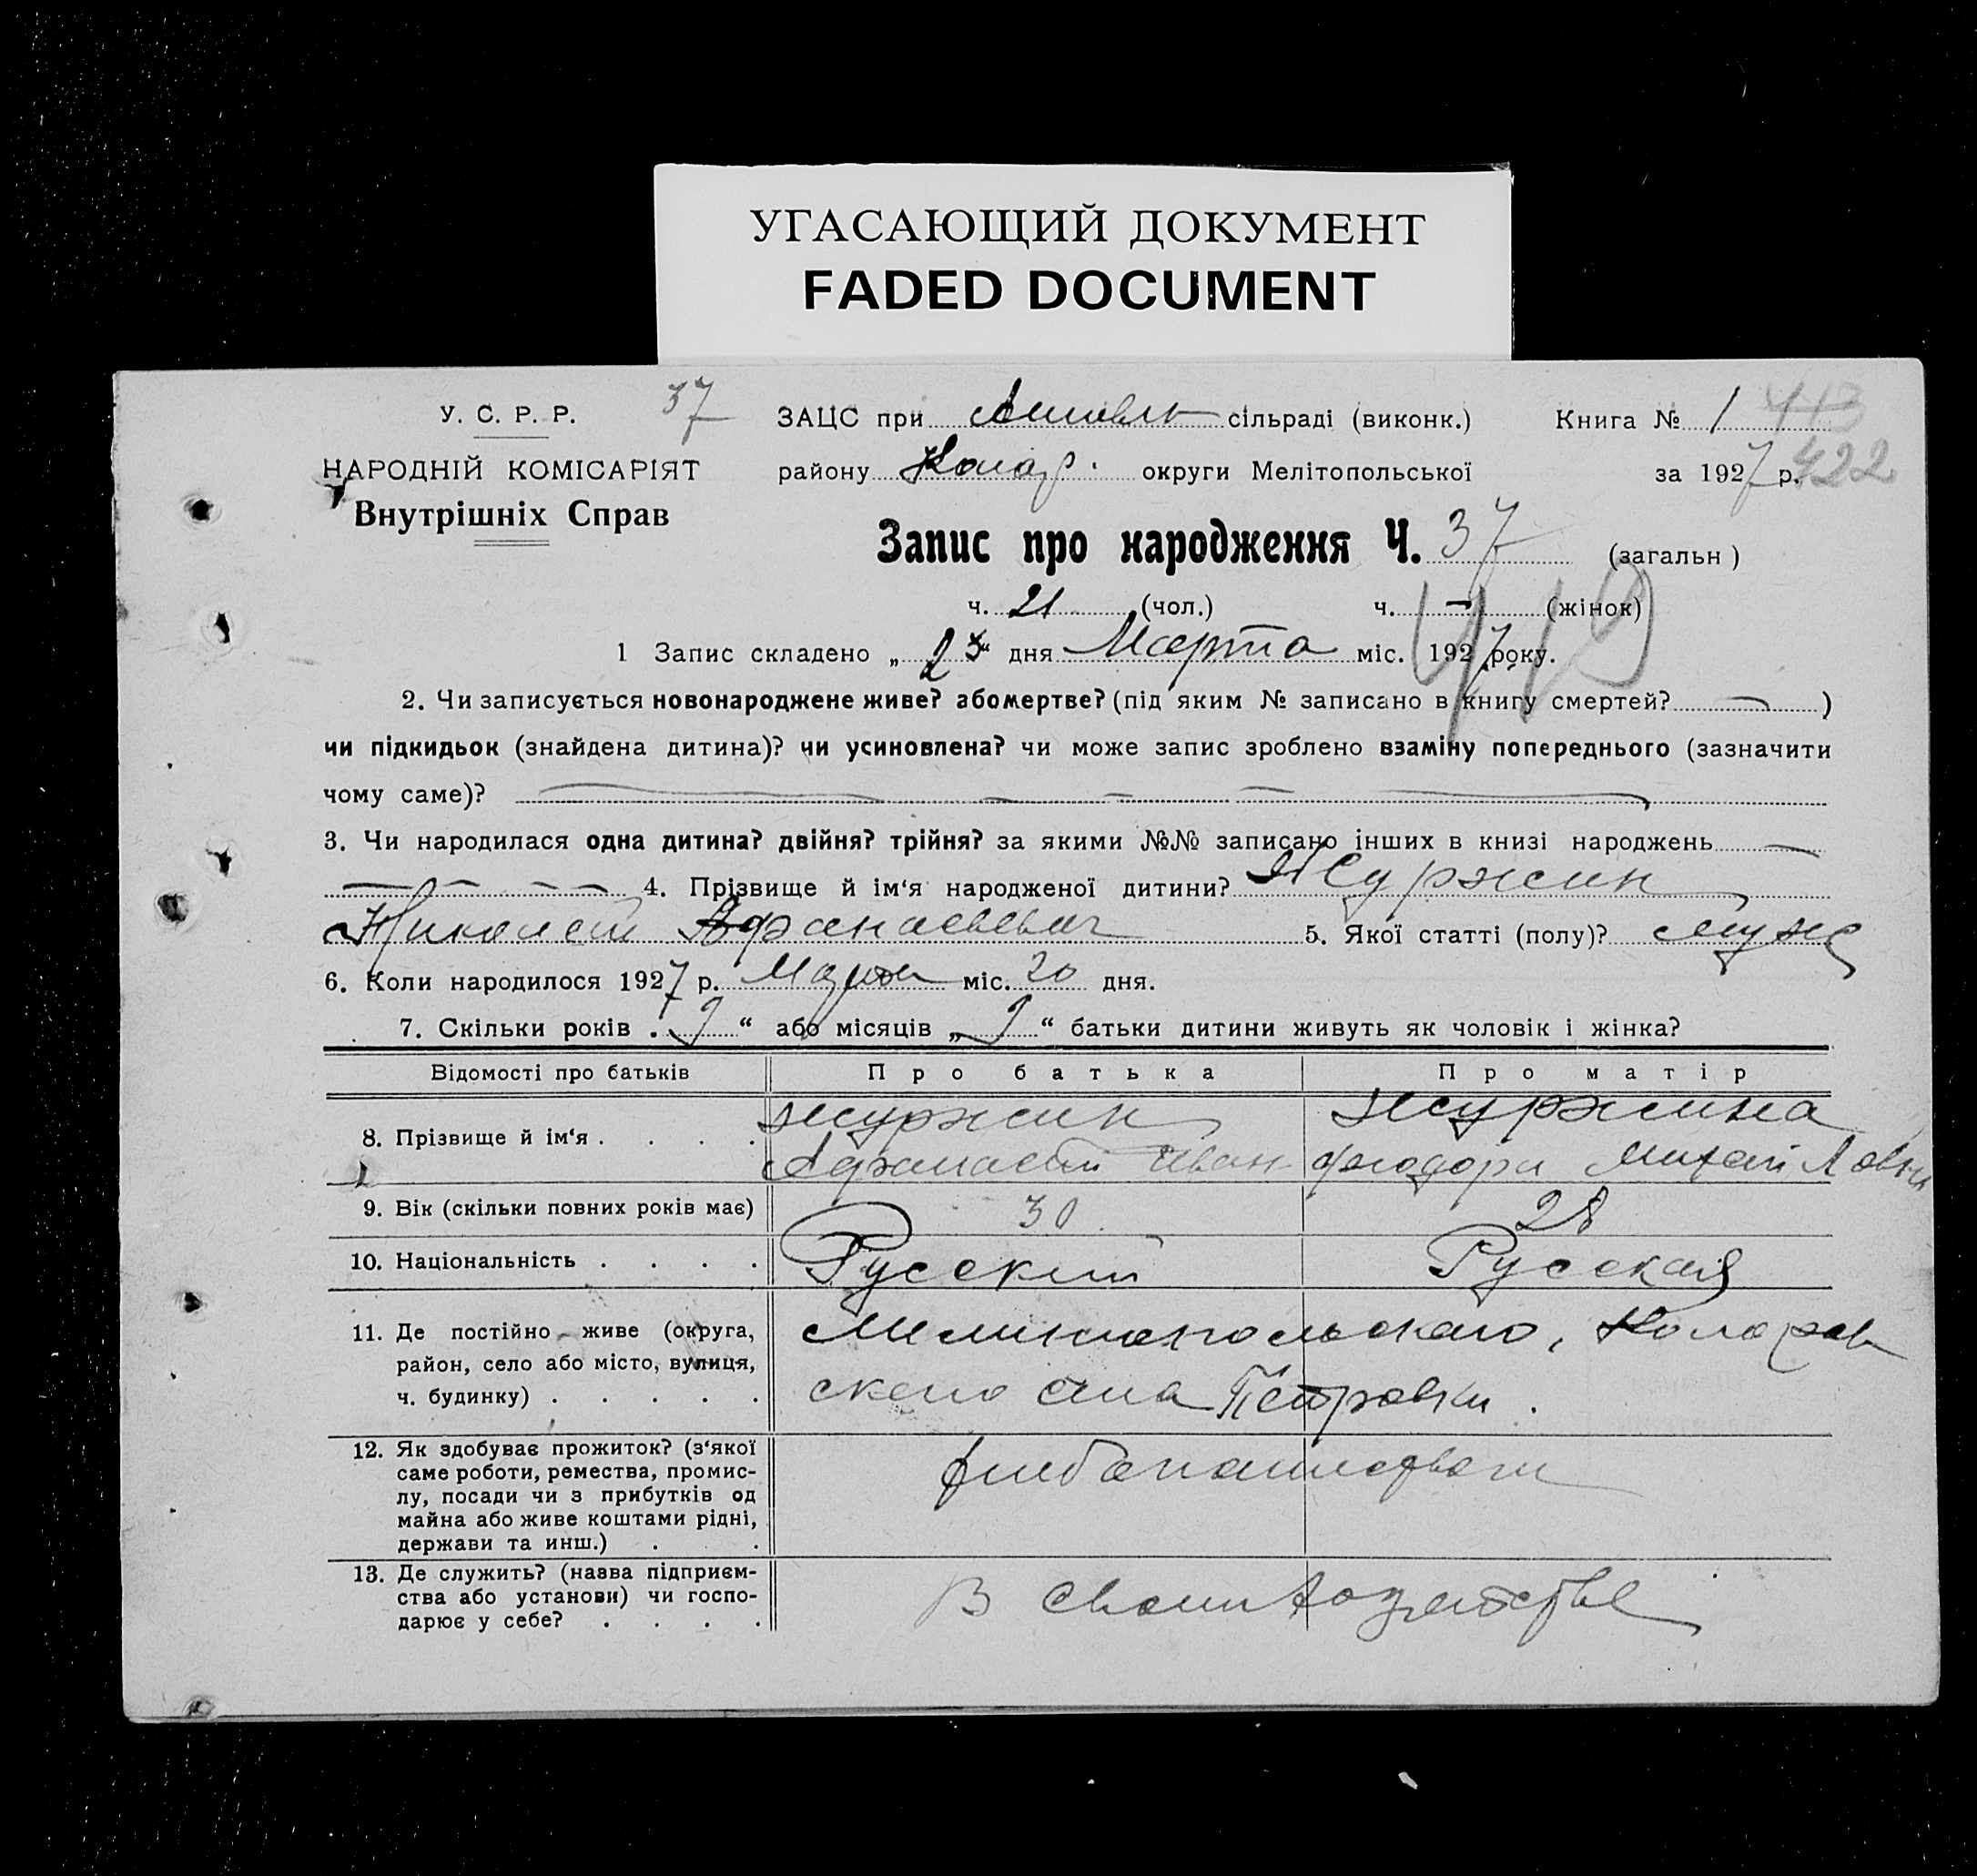 УГАСАЮЩИЙ ДОКУМЕНТ
FADED DOCUMENT
У. С. Р. Р. 37 ЗАЦС при сільраді (виконк.) Книга № 1 413
НАРОДНІЙ КОМІСАРІЯТ району округи Мелітопольської за 1927 р. 422
Внутрішніх Справ
Запис про народження Ч. 37 (загальн)
ч. 21 (чол.) ч. — (жінок)
1 Запис складено „ 23 “ дня Марта міс. 1927 року.
2. Чи записується новонароджене живе? або мертве? (під яким № записано в книгу смертей? — )
чи підкидьок (знайдена дитина)? чи усиновлена? чи може запис зроблено взаміну попереднього (зазначити
чому саме)?
3. Чи народилася одна дитина? двійня? трійня? за якими №№ записано інших в книзі народжень —
4. Прізвище й ім‘я народженої дитини? Журжин
Николай Афанасьевич 5. Якої статті (полу)? муж
6. Коли народилося 1927 р. Марта міс. 20 дня.
7. Скільки років „ 9 “ або місяців „ 9 “ батьки дитини живуть як чоловік і жінка?
Відомості про батьків Про батька Про матір
8. Прізвище й ім‘я . . . . Журжин Журжина
Афанасий Иван Феодора Михайловна
9. Вік (скільки повних років має) 30 28
10. Національність . . . . Русский Русская
11. Де постійно живе (округа, Мелитопольского, Коларов
район, село або місто, вулиця, ского села Петровки.
ч. будинку) . . . . .
12. Як здобуває прожиток? (з‘якої
саме роботи, ремества, промис-
лу, посади чи з прибутків од
майна або живе коштами рідні,
держави та инш.) . .
13. Де служить? (назва підприєм-
ства або установи) чи госпо- В своем хозяйстве
дарює у себе? . . . .